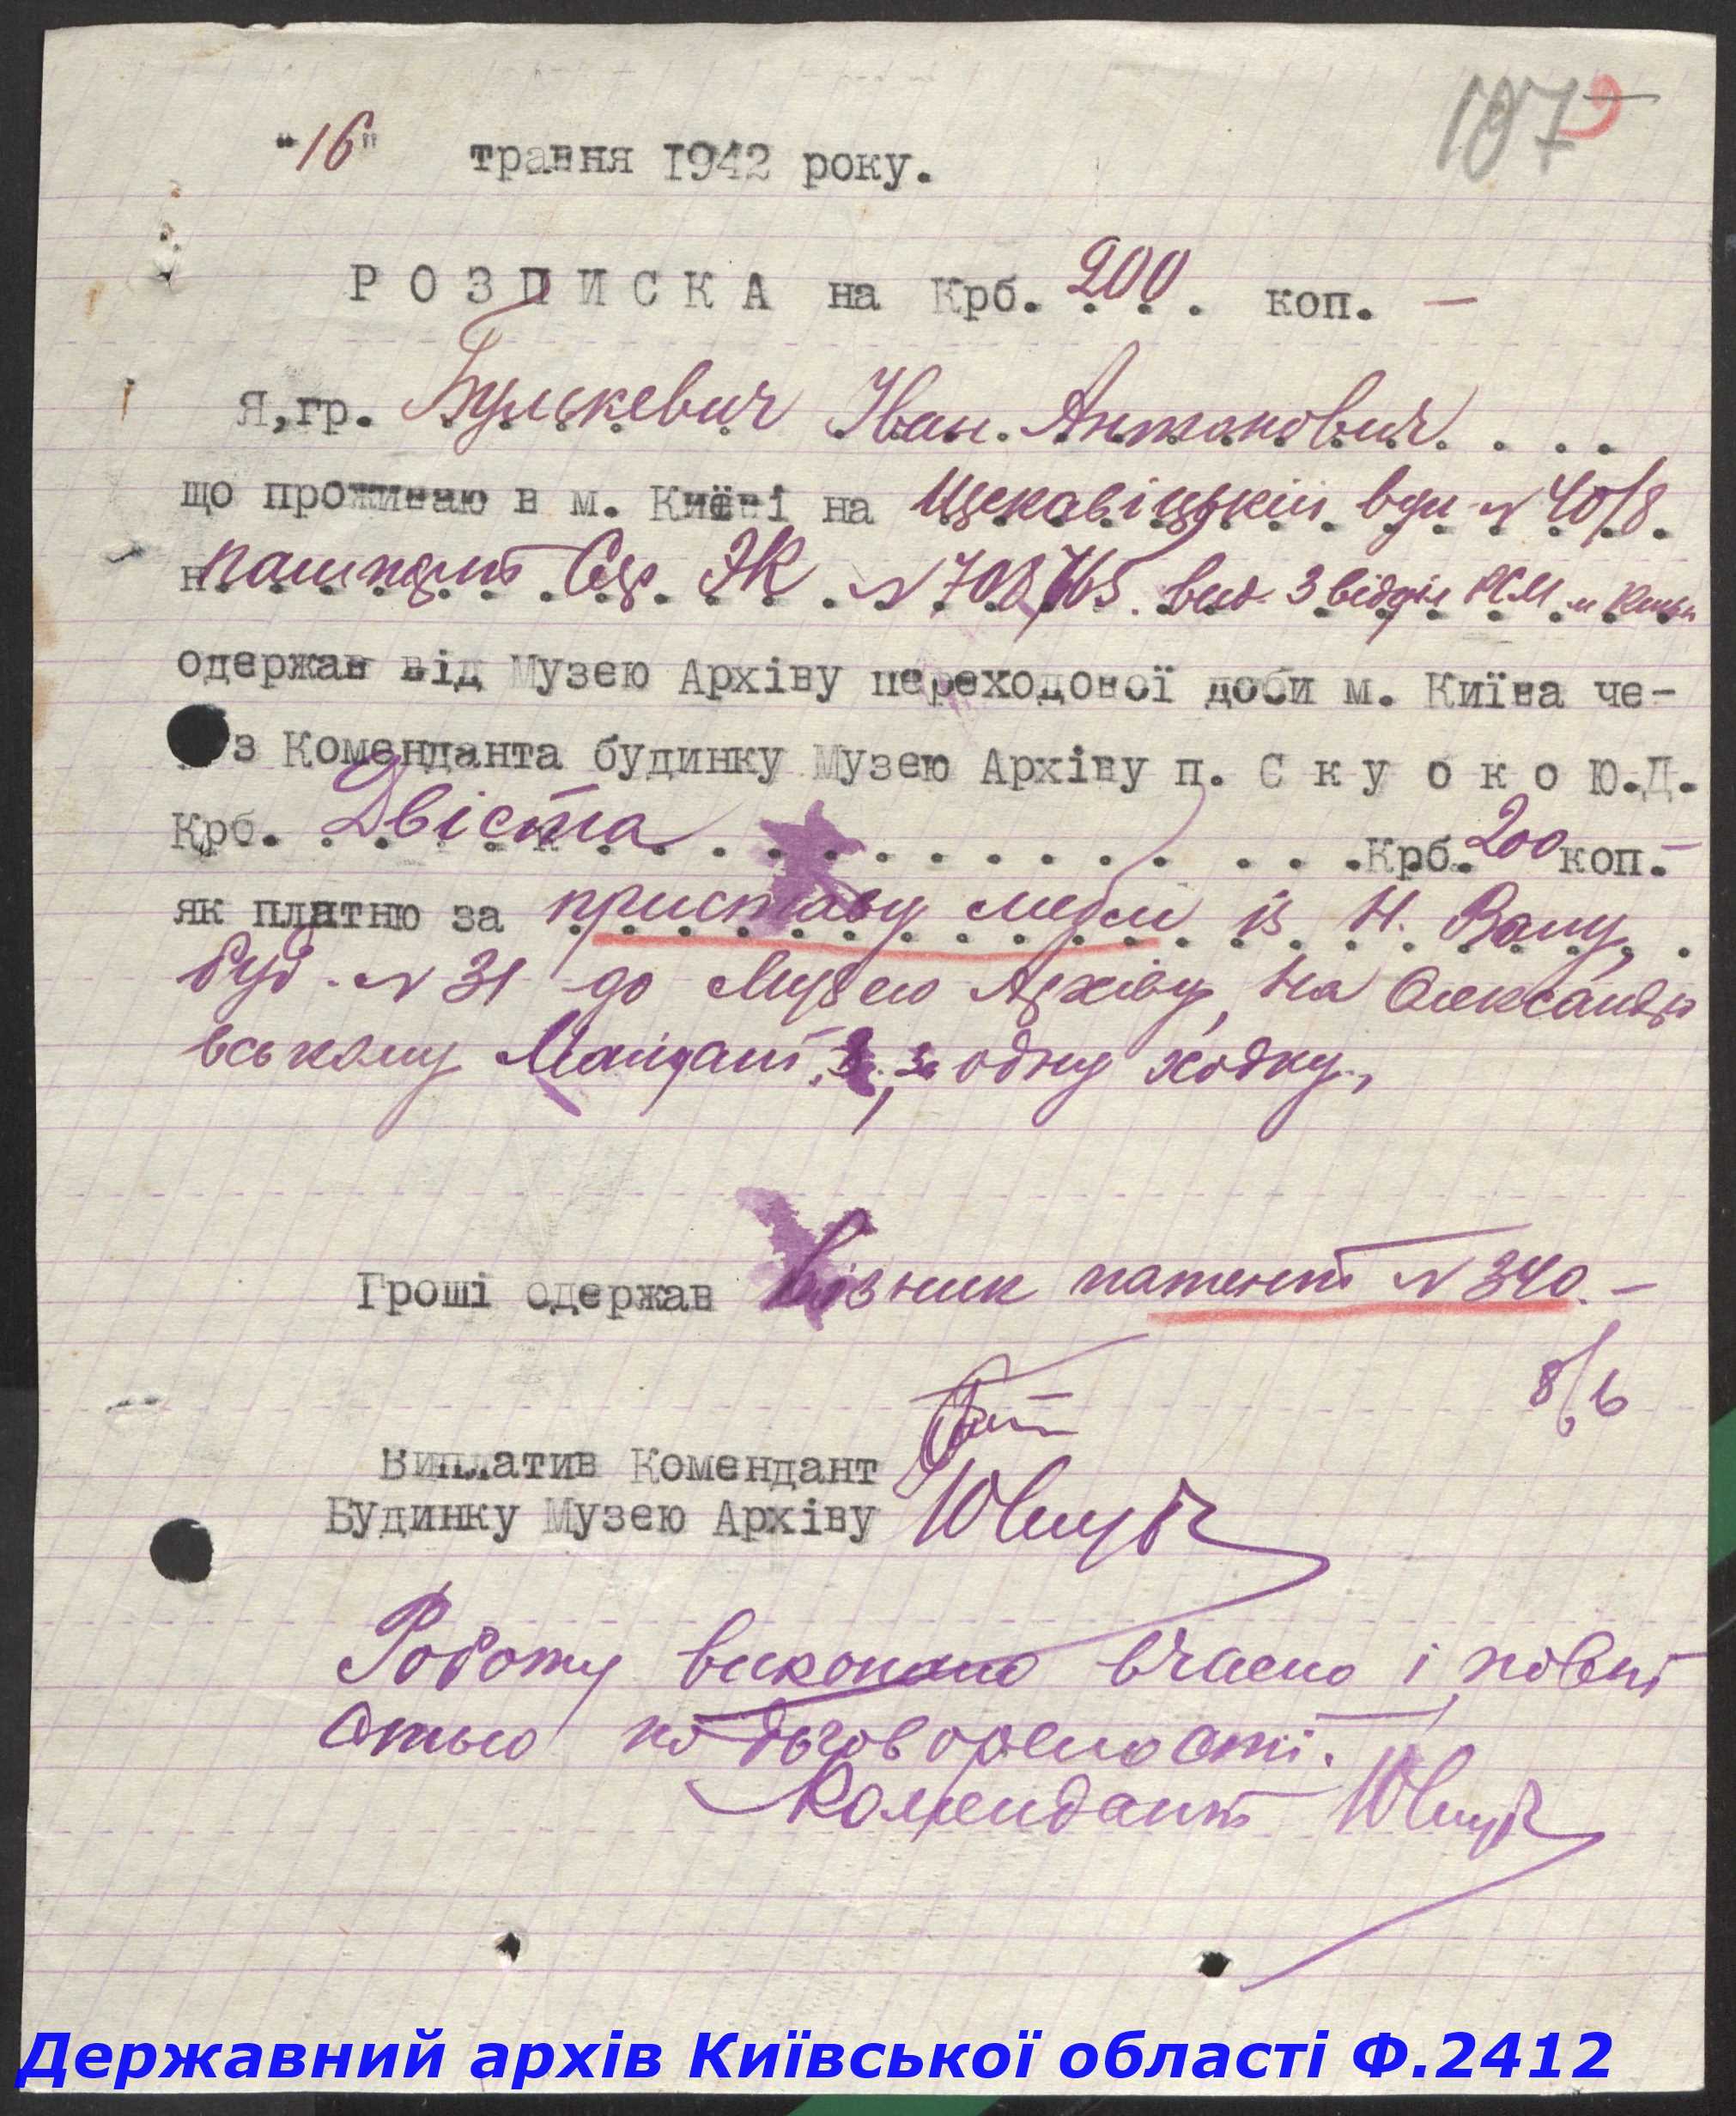 187
"16" травня 1942 року.
РОЗПИСКА на Крб. 200. коп. —
Я, гр. Булькевич Іван Антонович. . . .
що проживаю в м. Києві на Щекавіцькій вул N 40/8.
пашпорт Сер. ЭК N 708765. вид. 3 відділ РКМ м Києва
одержав від Музею Архіву переходової доби м. Київа че-
з Коменданта будинку Музею Архіву п. С к у о к о Ю.Д.
Крб. Двіста . . . . . . . . . . . . Крб. 200 коп. —
як платню за приставу меблі із Н. Валу,
буд. N 31 до Музею Архіву, на Олександрі
вському Майдані, за одну ходку,
Гроші одержав Візник патент N 340. —
8/6
Виплатив Комендант
Будинку Музею Архіву
Роботу виконано вчасно і повні
стью по договорености.
Комендант
Державний архів Київської області Ф.2412